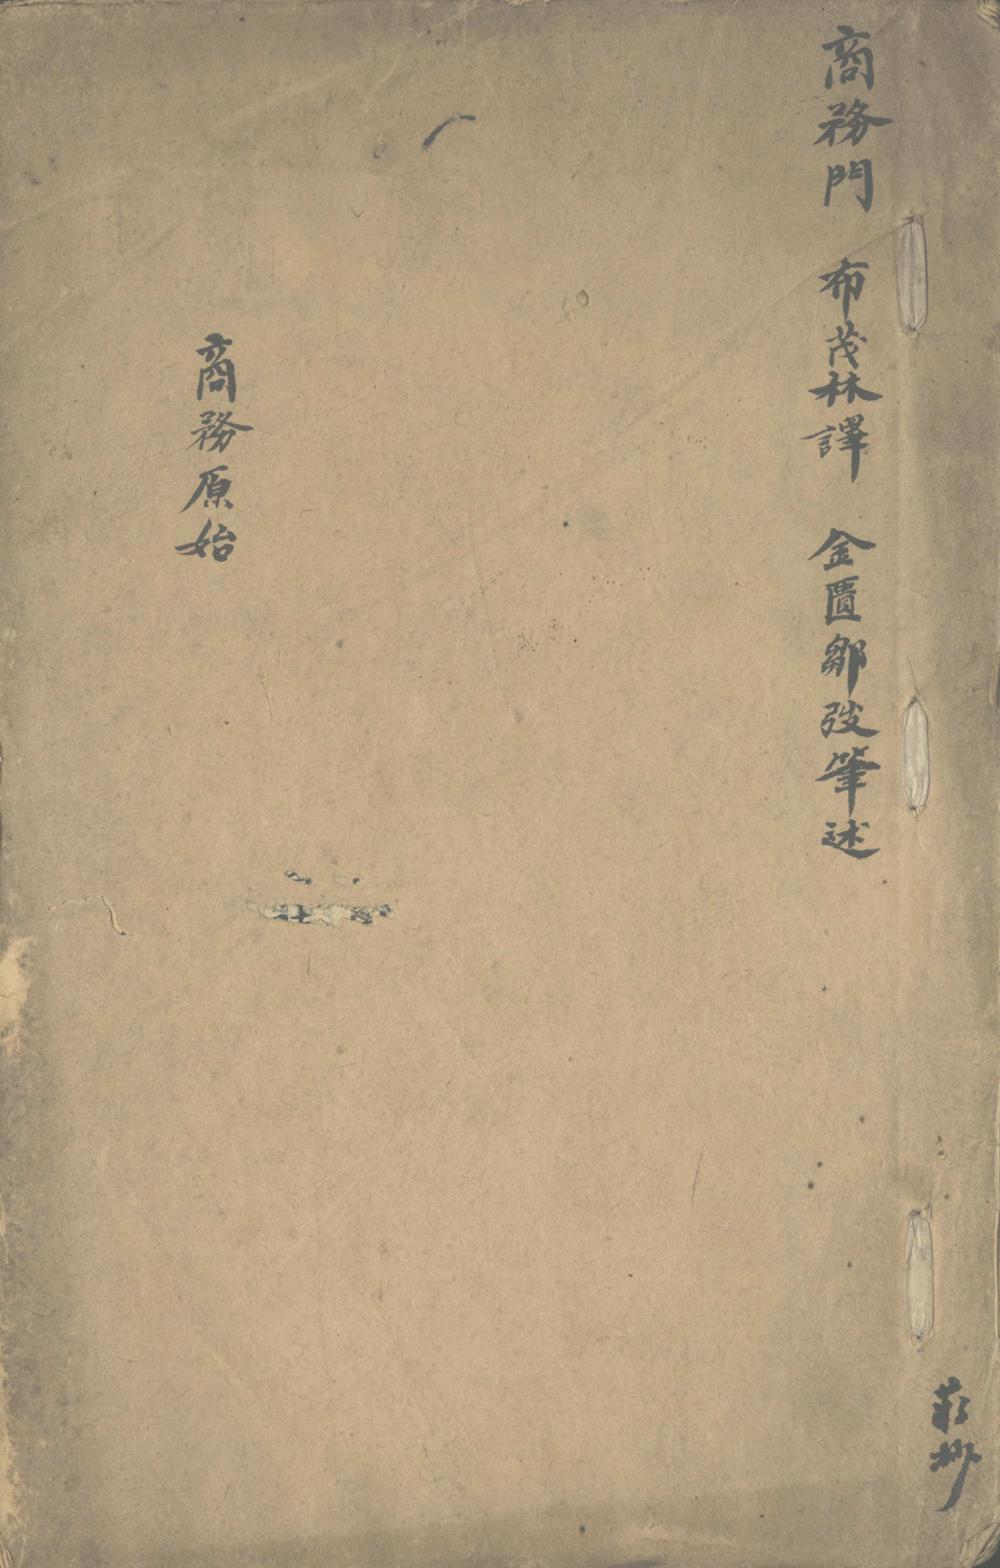 商務門 布茂林譯 金匱鄒弢筆述
商務原始